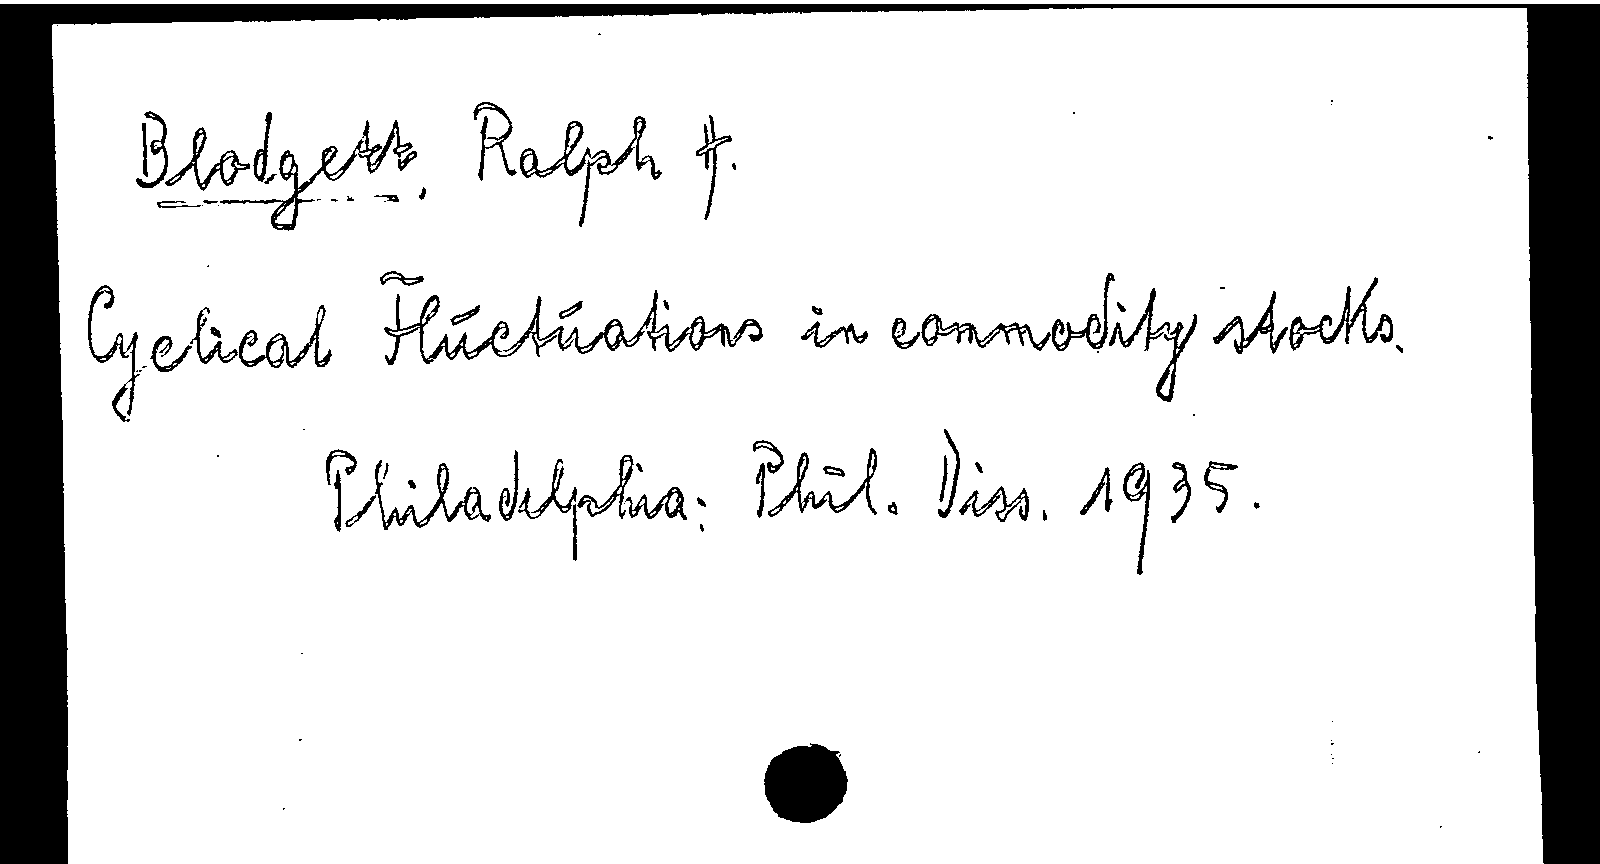 Blodgett, Ralph H.
Cyclical Fluctuations in commodity stocks.
Philadelphia: Phil. Diss. 1935.